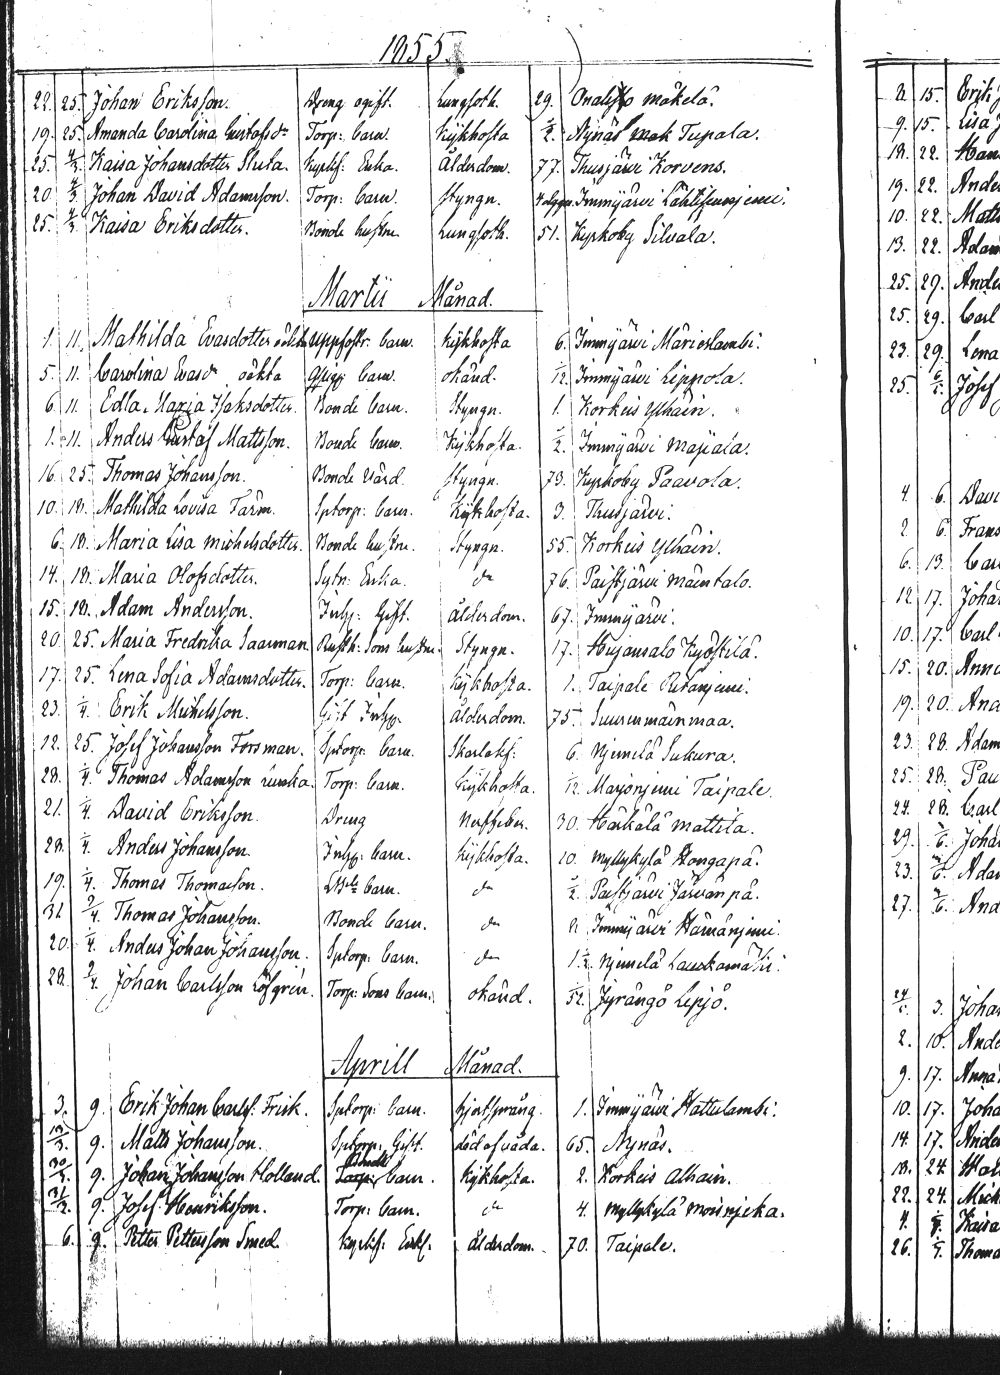 1855.
22. 25. Johan Eriksson. Dreng ogift. Lungsoth. 29. Mäkelä.
19. 25. Amanda Carolina Gustafsdr Torp: barn. Kijkhosta ½. Nynäs Tupala.
25. 4/3. Kaisa Johansdotter Kyrkf: Enka. Ålderdom. 77. Thusjärvi Korvens.
20 4/3. Johan David Adamsson. Torp: barn. Styngn. Immjärvi
25. 4/3. Kaisa Eriksdotter. Bonde hustru. Lungsoth. 51. Kyrkoby Silvala.
Martii Månad.
1. 11. Mathilda Evasdotter oäkta uppfostr: barn. Kijkhosta 6. Immjärvi
5. 11. Carolina Evasdr oäkta barn. okänd. 1/12. Immjärvi Leppola.
6. 11. Edla Maria Isaksdotter. Bonde barn. Styngn. 1. Korkeis Ylhäin.
1. 11. Anders Gustaf Mattsson. Bonde barn. Kijkhosta. ½. Immjärvi Majiala.
16. 25. Thomas Johansson. Bonde Värd. Styngn. 73. Kyrkoby Paavola.
10. 18. Mathilda Lovisa Färm. Sptorp: barn. Kijkhosta. 3. Thusjärvi.
6. 18. Maria Lisa Michelsdotter. Bonde hustru. Styngn. 55. Korkeis Ylhäin.
14. 18. Maria Olofsdotter. Sytn: Enka. do 76. Paistjärvi Mäentalo.
15. 18. Adam Andersson. Inhy: Gift. Ålderdom. 67. Immjärvi.
20. 25. Maria Fredrika Saarman. Rusth: Sons hustru. Styngn. 17. Hujansalo Kyöstilä.
17. 25. Lena Sofia Adamsdotter. Torp: barn. Kijkhosta. 1. Taipale
23. 1/4. Erik Michelsson. Gift Inhy. Ålderdom. 75. Suurenmäinmaa.
12. 25. Josef Johansson Forsman. Sptorp: barn. Skarlakf: 6. Njemelä Sukura.
28. 1/4. Thomas Adamsson Torp: barn. Kijkhosta. 1/12. Marjonjemi Taipale.
21. 1/4. David Eriksson. Dreng Nervfeber. 30. Härkälä Mattila.
28. 1/4. Anders Johansson. Inhy: barn. Kijkhosta. 10. Myllykylä Hongapä.
19. 1/4. Thomas Thomasson. barn. do ½. Paistjärvi Järvänpä.
31. 2/4. Thomas Johansson. Bonde barn. do Immjärvi Hämänjemi.
20. 1/4. Anders Johan Johansson. Sptorp: barn. do 1.½ Njemelä
28. 2/4. Johan Carlsson Löfgrén. Torp: Sons barn: okänd. 1/52. Jyrängö Lepjö.
Aprill Månad.
3. 9. Erik Johan Carlsf: Frisk. Sptorp: barn. hjertsprång. 1. Immjärvi Hattulambi.
13/3. 9. Matts Johansson. Sptorp: Gift. död af våda. 65. Nynäs.
30/3. 9. Johan Johansson Holland. Bonde barn. Kijkhosta. 2. Korkeis Alhain.
31/3. 9. Josef Henriksson. Torp: barn. do 4. Myllykylä Moisnjeka.
6. 9. Petter Pettersson Smed. Kyrkf: Enkl: Ålderdom. 70. Taipale.
15. Erik
9. 15. Lisa
18. 22.
19. 22. Ande
10. 22. Matts
13. 22. Adam
25. 29. Ande
25. 29. Carl
23. 29. Lena
25. Josef
4. 6. Davi
2. 6. Frans
6. 13. Car
12. 17. Johan
10. 17. Carl
15. 20. Anna
19. 20. And
23. 28. Adam
25. 28. Pau
24. 28. Carl
29. Johan
23. Adam
27. And
3. Johan
2. 10. Ande
9. 17. Anna
10. 17. Joha
14. 17. Ande
18. 24.
22. 24. Mich
4. Kaisa
26. Thoma